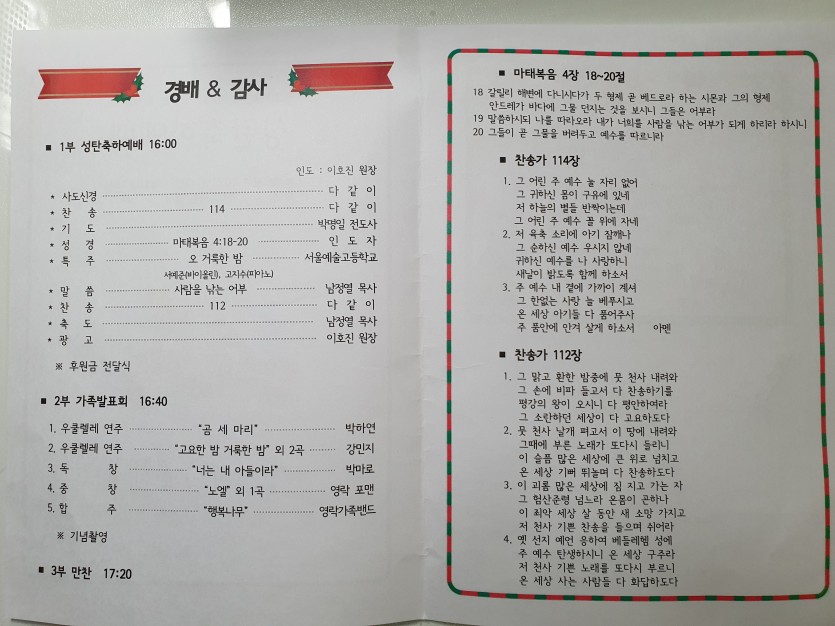 경배 & 감사
■ 1부 성탄축하예배 16:00
인도 : 이호진 원장
* 사도신경 다 같 이
* 찬 송 114 다 같 이
* 기 도 박명일 전도사
* 성 경 마태복음 4:18-20 인 도 자
* 특 주 오 거룩한 밤 서울예술고등학교
서예준(바이올린), 고지수(피아노)
* 말 씀 사람을 낚는 어부 남정열 목사
* 찬 송 112 다 같 이
* 축 도 남정열 목사
* 광 고 이호진 원장
※ 후원금 전달식
■ 2부 가족발표회 16:40
1. 우쿨렐레 연주 "곰 세 마리" 박하연
2. 우쿨렐레 연주 "고요한 밤 거룩한 밤" 외 2곡 강민지
3. 독 창 "너는 내 아들이라" 박마로
4. 중 창 "노엘" 외 1곡 영락 포맨
5. 합 주 "행복나무" 영락가족밴드
※ 기념촬영
■ 3부 만찬 17:20
■ 마태복음 4장 18~20절
18 갈릴리 해변에 다니시다가 두 형제 곧 베드로라 하는 시몬과 그의 형제
안드레가 바다에 그물 던지는 것을 보시니 그들은 어부라
19 말씀하시되 나를 따라오라 내가 너희를 사람을 낚는 어부가 되게 하리라 하시니
20 그들이 곧 그물을 버려두고 예수를 따르니라
■ 찬송가 114장
1. 그 어린 주 예수 눌 자리 없어
그 귀하신 몸이 구유에 있네
저 하늘의 별들 반짝이는데
그 어린 주 예수 꼴 위에 자네
2. 저 육축 소리에 아기 잠깨나
그 순하신 예수 우시지 않네
귀하신 예수를 나 사랑하니
새날이 밝도록 함께 하소서
3. 주 예수 내 곁에 가까이 계셔
그 한없는 사랑 늘 베푸시고
온 세상 아기들 다 품어주사
주 품안에 안겨 살게 하소서 아멘
■ 찬송가 112장
1. 그 맑고 환한 밤중에 뭇 천사 내려와
그 손에 비파 들고서 다 찬송하기를
평강의 왕이 오시니 다 평안하여라
그 소란하던 세상이 다 고요하도다
2. 뭇 천사 날개 펴고서 이 땅에 내려와
그때에 부른 노래가 또다시 들리니
이 슬픔 많은 세상에 큰 위로 넘치고
온 세상 기뻐 뛰놀며 다 찬송하도다
3. 이 괴롬 많은 세상에 짐 지고 가는 자
그 험산준령 넘느라 온몸이 곤하나
이 죄악 세상 살 동안 새 소망 가지고
저 천사 기쁜 찬송을 들으며 쉬어라
4. 옛 선지 예언 응하여 베들레헴 성에
주 예수 탄생하시니 온 세상 구주라
저 천사 기쁜 노래를 또다시 부르니
온 세상 사는 사람들 다 화답하도다